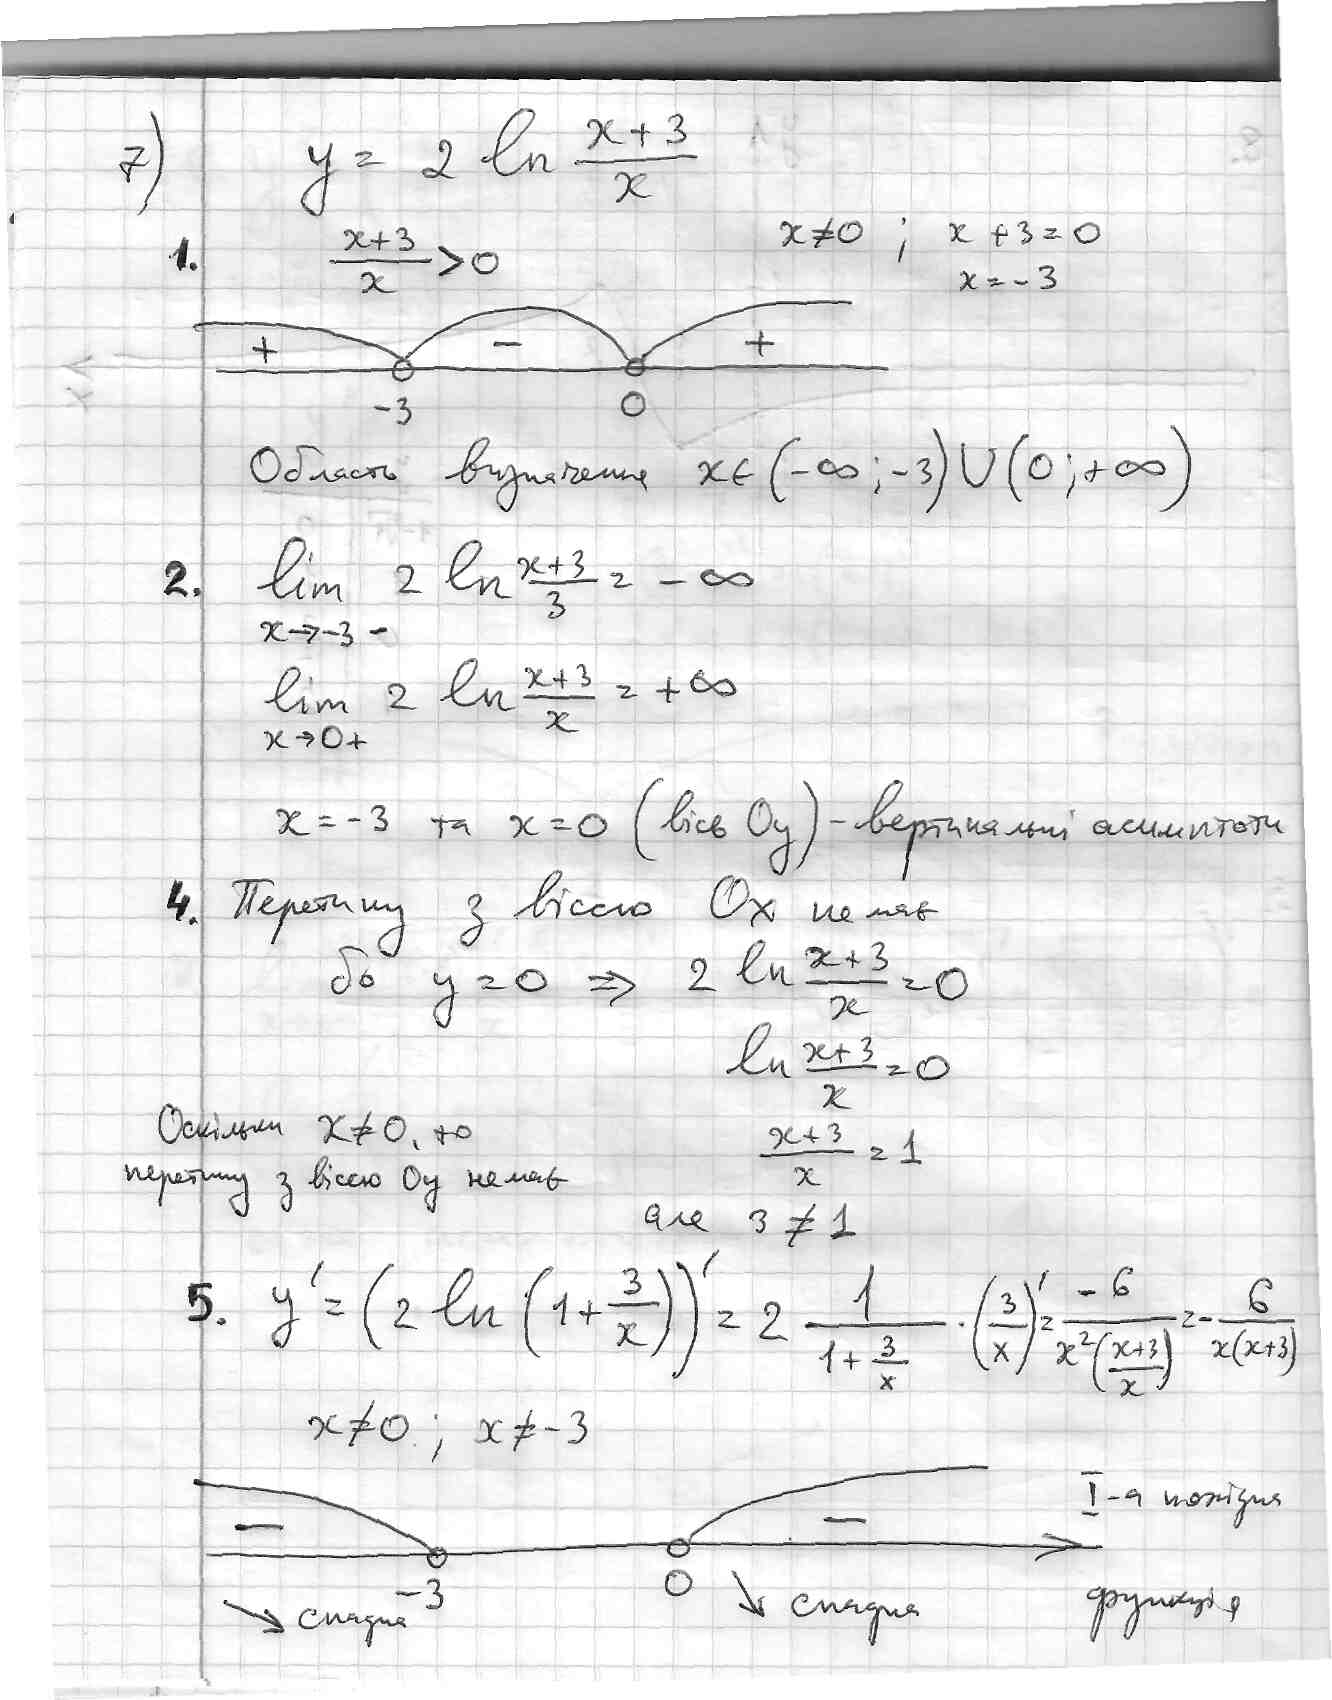 7) y = 2 ln (x+3)/x
1. (x+3)/x > 0 x≠0 ; x+3=0
x=-3
+ - +
-3 0
Область визначення x∈(-∞;-3)∪(0;+∞)
2. lim 2 ln (x+3)/3 = -∞
x→-3-
lim 2 ln (x+3)/x = +∞
x→0+
x=-3 та x=0 (вісь Oy) - вертикальні асимптоти
4. Перетину з віссю Ox немає
бо y=0 ⇒ 2 ln (x+3)/x = 0
ln (x+3)/x = 0
Оскільки x≠0, то (x+3)/x = 1
перетину з віссю Oy немає
але 3≠1
5. y' = (2 ln (1+3/x))' = 2 1/(1+3/x) · (3/x)' = -6/(x²((x+3)/x)) = - 6/(x(x+3))
x≠0 ; x≠-3
I-а похідна
- -
-3 0
↘ спадна ↘ спадна функція